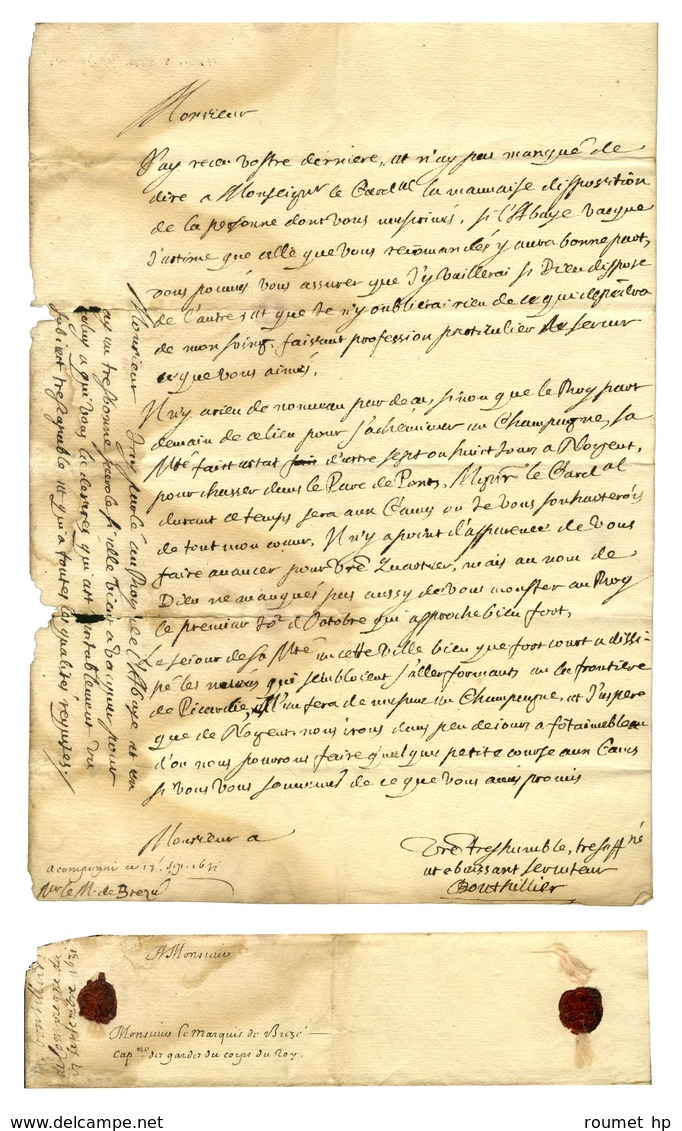 Monsieur
J'ay receu vostre derniere, et n'ay pas manqué de
dire a Monseigr le Card al la mauvaise disposition
de la personne dont vous m'escrivés, si l'Abaye vacque
J'estime que celle que vous recomandés y aura bonne part,
vous pouvés vous assurer que J'y vaillerai si Dieu dispose
de l'autre, et que Je n'y oublierai rien de ce qui dependra
de mon soing, faisant profession particuliere de servir
ce que vous aimés.
Il n'y a rien de nouveau par deca, sinon que le Roy part
demain de ce lieu pour s'acheminer en Champagne, sa
Mté faict estat d'estre sept ou huict Jours a Nogent,
pour chasser dans le Parc de Ponts, Monsr le Card al
durant ce temps sera aux Caves ou Je vous souhaiterois
de tout mon coeur, Il n'y a point d'apparence de vous
faire avancer pour vre quartier, mais au nom de
Dieu ne manqués pas aussy de vous monstrer au Roy
le premier Jor d'Octobre qui approche bien fort,
Le sejour de sa Mté en cette ville bien que fort court a dissi-
pé les qui sembloient s'aller formants en la frontiere
de Picardie, Il en fera de mesme en Champagne, et J'espere
que de Nogent nous irons dans peu de jours a fōtainebleau
d'ou nous pourrons faire quelque petite course aux Caves
si vous vous souvenés de ce que vous aviés promis
Monsieur J'ay parlé au Roy de l'Abaye et en
ay eu tres bonne parole si elle vient a vacquer pour
celuy a qui vous la desirés qui est veritablement un
subiect tres capable et qui a toutes les qualités requises.
Monsieur a
Vre tres humble, tres affné
et obeissant serviteur
Bouthillier
a compiegne ce 17e sep. 1631
Mr le M. de Brezé
A Monsieur
Monsieur le Marquis de Brezé
Capne des gardes du corps du Roy.
roumet hp